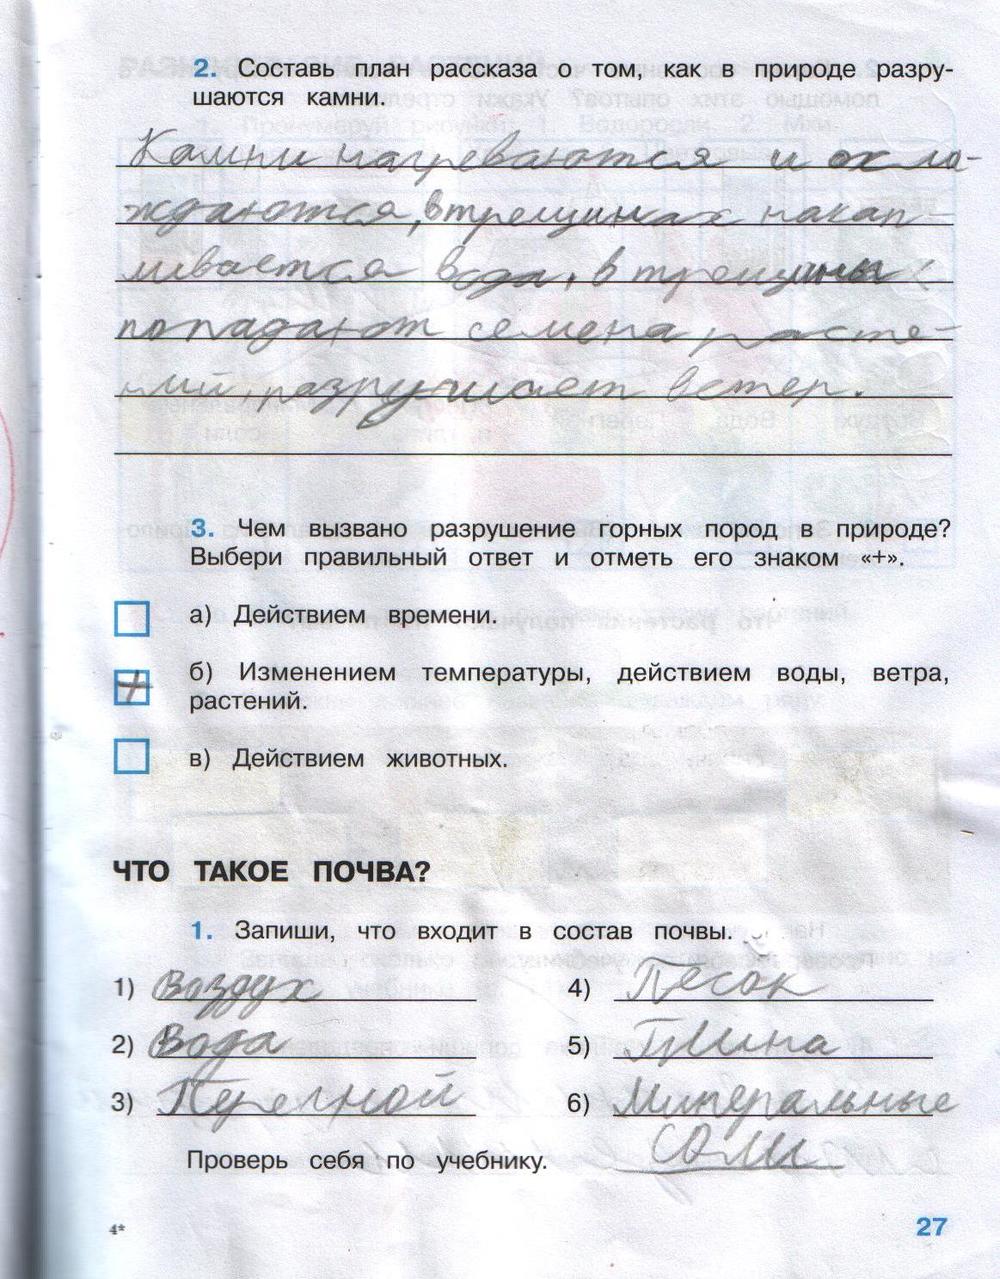 2. Составь план рассказа о том, как в природе разру-
шаются камни.
Камни нагреваются и охла-
ждаются, в трещинах накап-
ливается вода, в трещины
попадают семена расте-
ний, разрушает ветер.
3. Чем вызвано разрушение горных пород в природе?
Выбери правильный ответ и отметь его знаком «+».
а) Действием времени.
+ б) Изменением температуры, действием воды, ветра,
растений.
в) Действием животных.
ЧТО ТАКОЕ ПОЧВА?
1. Запиши, что входит в состав почвы.
1) Воздух 4) Песок
2) Вода 5) Глина
3) Перегной 6) Минеральные
Проверь себя по учебнику. соли
4* 27